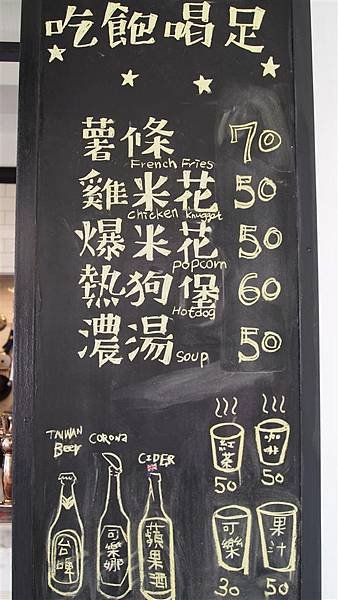 吃飽喝足
薯條 70
French Fries
雞米花 50
Chicken Knuggat
爆米花 50
POPCORN
熱狗堡 60
Hotdog
濃湯 50
Soup
TAIWAN Beer
CORONA
CIDER
台啤
可樂娜
蘋果酒
紅茶 50
咖啡 50
可樂 30
果汁 50